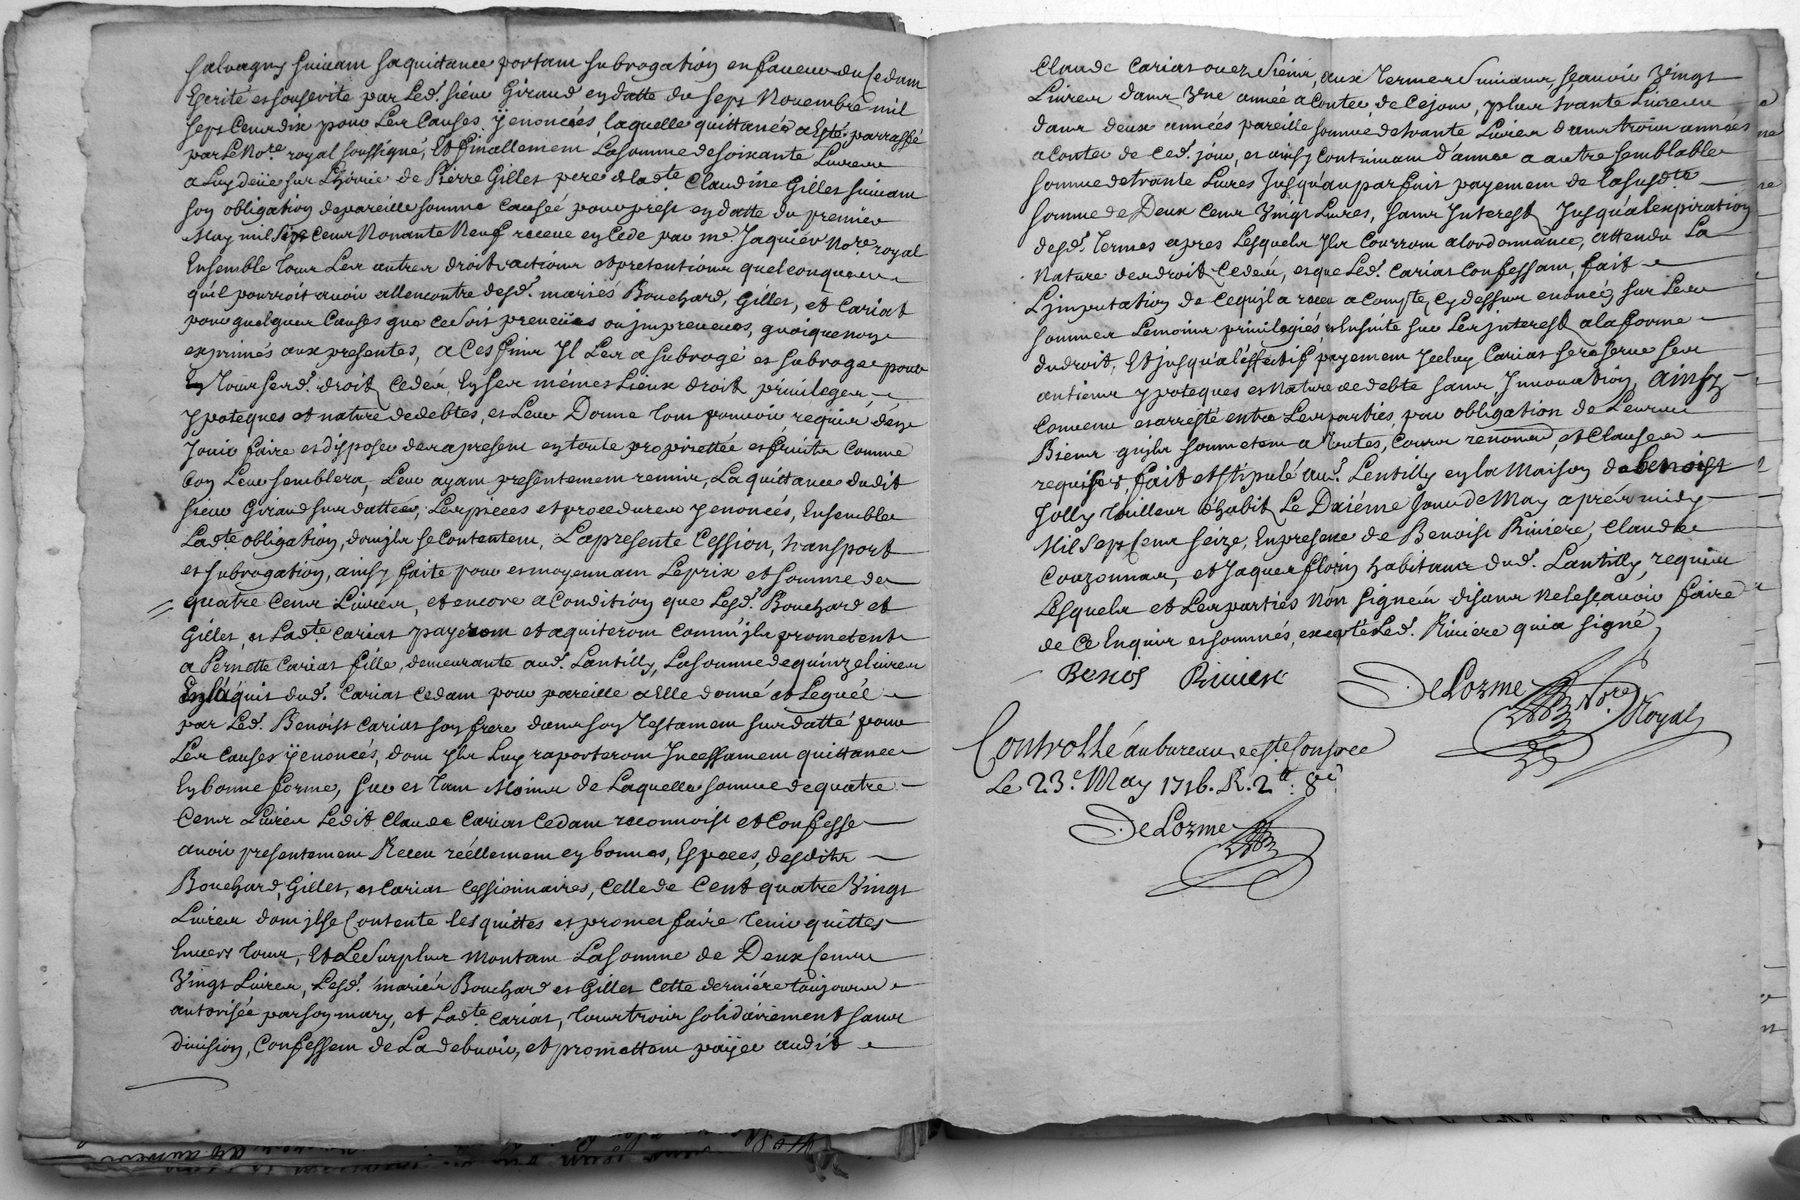 Salvagny suivam sa quictance portam subrogation en faveur du Cedam
Escrité et souscrite par Led. sieur Giraud en datte du sept Novembre mil
sept Cent dix pour Les Causes y enoncées, laquelle quittance a Esté parraffé
par Le No.re royal soussigné, Et finallement La somme de soixante Livres
a Luy deüe sur L'hoirie de Pierre Gillet pere de lad.te Claudine Gillet suivam
son obligation de pareille somme Causée pour prest en datte du premier
May mil Six Cent Nonante Neuf receue en Cede par me. Jaquier No.re royal
Ensemble tous Les autres droits actions et pretentions quelconques
qu'il pourroit avoir allencontre desd. mariés Bouchard, Gillet, et Cariat
pour quelques Causes que ce soit preveües ou impreveues, quoique non
exprimés aux presentes, a Ces fins Il Les a subrogé et subroge pour
tous sesd. droits Cedés En ses mémes Lieux droit privileges
ypoteques et nature de debtes, et Leur Donne tout pouvoir requis d'en
Jouir faire et disposer des a present en toute propriettée et fruits Comme
bon Leur semblera, Leur ayam presentement remis, La quittance dudit
sieur Giraud sus dattée, Les pieces et procedures y enoncés, Ensemble
Lad.te obligation, dont ils se Contentent, La presente Cession, transport
et subrogation, ainsy faite pour et moyennam Le prix et somme de
quatre Cent Livres, et encore a Condition que Lesd. Bouchard et
Gillet, et Lad.te Cariat payeront et aquiteront Comm'ils prometent
a Pernette Cariat fille, demeurante aud. Lantilly, La somme de quinze livres
En l'aquit dud. Cariat Cedam pour pareille a Elle donné et Legué
par Led. Benoist Cariat son frere dans son Testament sus datté pour
Les Causes y enoncés, dont ils Luy raporteront Incessament quittance
En bonne forme, sur et tant Moins de Laquelle somme de quatre
Cent Livres Ledit Claude Cariat Cedam reconnoist et Confesse
avoir presentement Receu réellement en bonnes, Especes, desdits
Bouchard, Gillet, et Cariat Cessionnaires, Celle de Cent quatre Vingt
Livres dont il se Contente les quittes et promet faire tenir quittes
Envers tous, Et Le Surplus montam La somme de Deux Cents
Vingt Livres, Lesd. mariés Bouchard et Gillet Cette derniére toujours
autorisée par son mary, et Lad.te Cariat, tous trois solidairement sans
division, Confessent de La debvoir, et promettent paÿer audit
Claude Cariat aux termes suivans, sçavoir Vingt
Livres dans Vne année a Conter de Ce jour, plus trante Livres
dans deux années pareille somme de trante Livres dans trois années
a Conter de Ced. jour, et ainsy Continuam d'année a autre semblable
somme de trante Livres Jusqu'au parfait payement de La susd.te
somme de Deux Cent Vingt Livres, sans Interest Jusqu'a l'expiration
desd. termes apres Lesquels Ils Courront a l'ordonnance, attendu La
Nature des droit Cedés, et que Led. Cariat Confessam, fait
L'imputation de Ce qu'il a receu a Compte Cy dessus enoncé sur Les
sommes Le moins privilegiés, Ensuite sur Les interest a la forme
du droit, Et jusqu'a l'effectif payement Iceluy Cariat se reserve ses
antiens ypoteques et Nature de debte sans Innovation, Ainsy
Convenu et arresté entre Les parties, par obligation de Leurs
Biens qu'ils soumettent a toutes, Cours renoncé, et Clauses
requises, fait et stipulé aud. Lentilly en la Maison de benoist
Jolly tailleur d'habit Le Dixiéme Jour de May aprés midy
Mil Sept Cent seize, En presence de Benoist Riviere, Claude
Couzonnat, et Jaques florin habitans dud. Lantilly, requis
Lesquels et Les parties Non signés disant ne le sçavoir faire
de Ce Enquis et sommés, excepté Led. Riviere qui a signé
Benoi Riviere
DeLorme No.re Royal
Controllé au bureau de st.e Consorce
Le 23.e May 1716. R. 2.tt 8.s
DeLorme